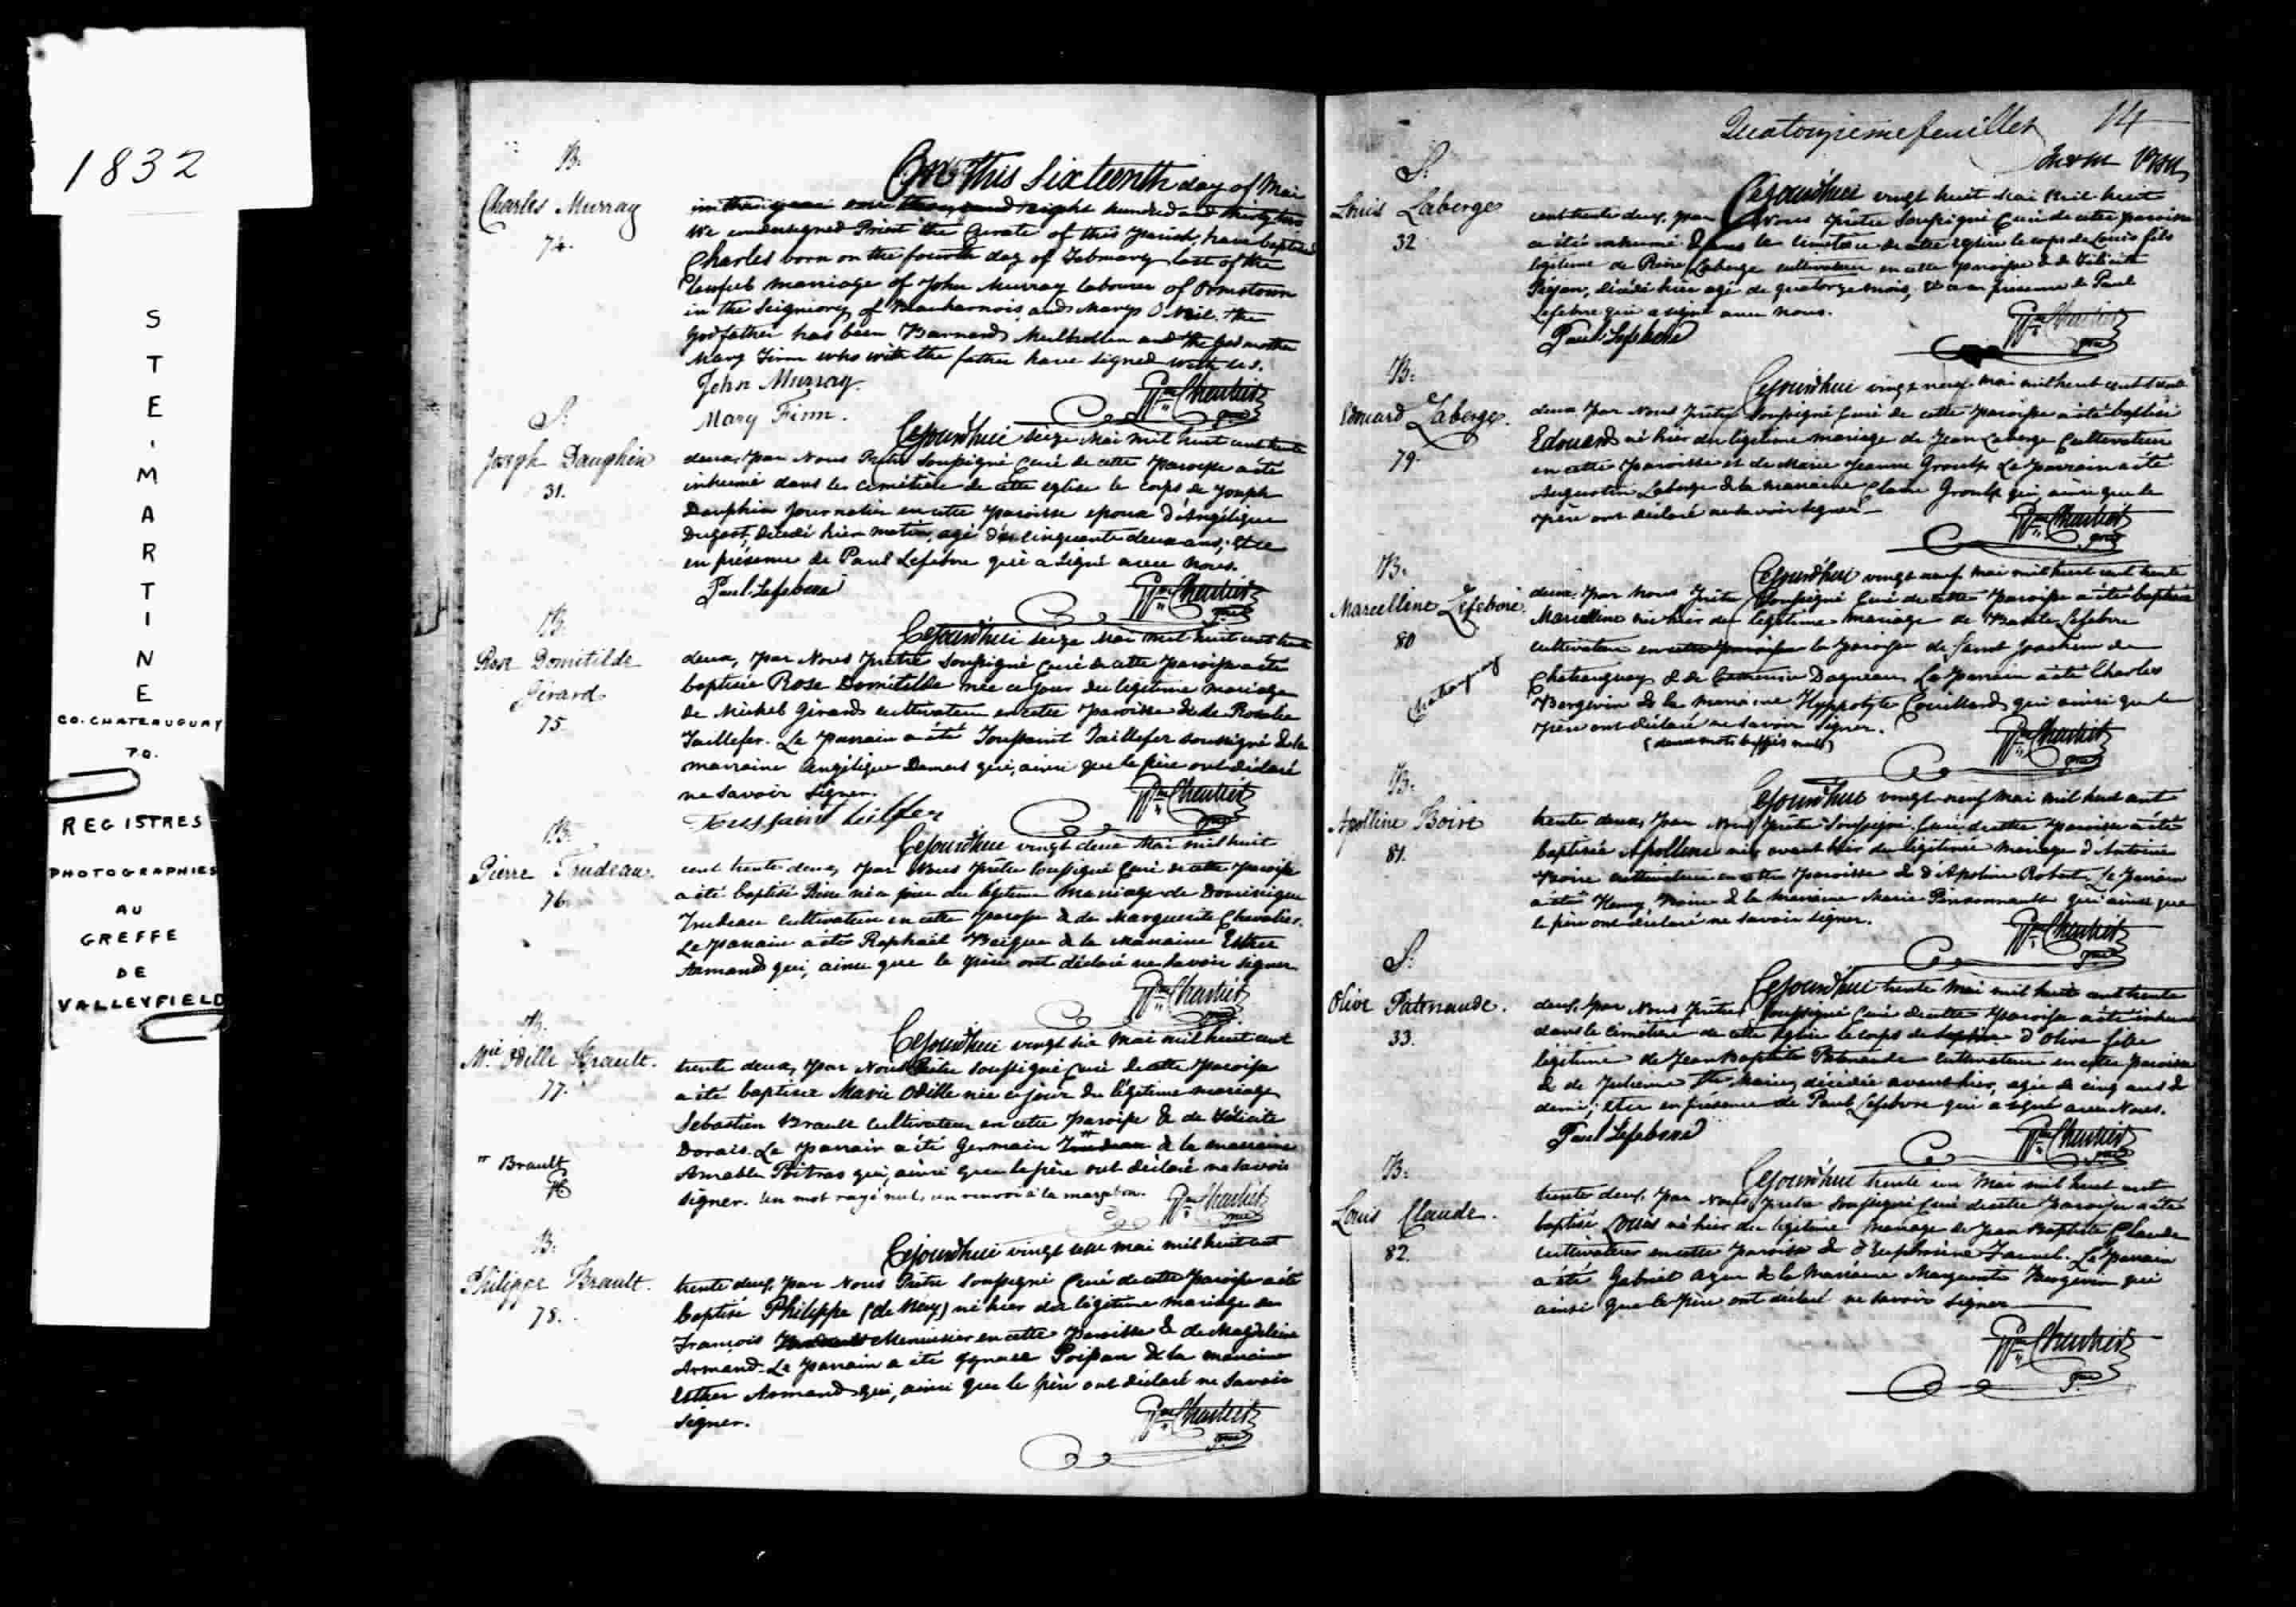 1832
STE-MARTINE
CO. CHATEAUGUAY
P.Q.
REGISTRES
PHOTOGRAPHIES
AU
GREFFE
DE
VALLEYFIELD
B.
Charles Murray
74.
On This Sixteenth day of Mai
in the year one thousand eight hundred and thirty two
We undersigned Priest the Curate of this Parish, have baptised
Charles born on the fourth day of February last of the
lawful marriage of John Murray labourer of Ormstown
in the Seigniory of Beauharnois and Mary O Neil. the
Godfather has been Barnard Mulhollen and the Godmother
Mary Finn who with the father have signed with us.
John Murray.
Mary Finn.
S.
Joseph Dauphin
31.
Cejourd'hui seize Mai mil huit cent trente
deux, par Nous Prêtre soussigné Curé de cette Paroisse a été
inhumé dans le cimetière de cette eglise le corps de Joseph
Dauphin journalier en cette paroisse epoux d'Angélique
décédé hier matin, agé de cinquante deux ans; et ce
en présence de Paul Lefebvre qui a signé avec nous.
Paul Lefebvre
B.
Rose Domitilde
Girard
75.
Cejourd'hui seize Mai mil huit cent trente
deux, par Nous Prêtre soussigné Curé de cette Paroisse a été
baptisée Rose Domitilde née ce jour du légitime mariage
de Michel Girard cultivateur en cette paroisse & de Rosalie
Taillefer. Le parrain a été Toussaint Taillefer soussigné & la
marraine Angélique Demers qui, ainsi que le père ont déclaré
ne savoir signer.
B.
Pierre Trudeau.
76.
Cejourd'hui vingt deux Mai mil huit
cent trente deux, par Nous Prêtre soussigné Curé de cette Paroisse
a été baptisé Pierre né ce jour du légitime mariage de Dominique
Trudeau cultivateur en cette paroisse & de Marguerite Chevalier.
Le parrain a été Raphaël & la marraine Esther
Armand qui, ainsi que le père ont déclaré ne savoir signer
B.
Mie Odille Brault.
77.
Cejourd'hui vingt six Mai mil huit cent
trente deux, par Nous Prêtre soussigné Curé de cette Paroisse
a été baptisée Marie Odille née ce jour du légitime mariage
Sebastien Brault cultivateur en cette paroisse & de Félicité
Dorais. Le parrain a été Germain Trudeau & la marraine
Amable Poitras qui, ainsi que le père ont déclaré ne savoir
signer. Un mot rayé nul, un renvoi à la marge bon.
Brault
B.
Philippe Brault.
78.
Cejourd'hui vingt sept Mai mil huit cent
trente deux, par Nous Prêtre soussigné Curé de cette Paroisse a été
baptisé Philippe (de Nery) né hier du légitime mariage de
François Menuisier en cette paroisse & de Magdeleine
Armand. Le parrain a été Ignace & la marraine
Esther Armand qui, ainsi que le père ont déclaré ne savoir
signer.
Quatorzieme feuillet 14
S.
Louis Laberge
32
Cejourd'hui vingt huit Mai mil huit
cent trente deux, par Nous Prêtre soussigné Curé de cette paroisse
a été inhumé dans le cimetière de cette eglise le corps de Louis fils
légitime de Pierre Laberge cultivateur en cette paroisse & de Félicité
décédé hier agé de quatorze mois, et ce en présence de Paul
Lefebvre qui a signé avec nous.
Paul Lefebvre
B.
Edouard Laberge.
79.
Cejourd'hui vingt neuf Mai mil huit cent trente
deux par Nous Prêtre soussigné Curé de cette Paroisse a été baptisé
Edouard né hier du légitime mariage de Jean Laberge Cultivateur
en cette Paroisse et de Marie Jeanne Groulx. Le parrain a été
Augustin Laberge & la marraine Claire Groulx qui, ainsi que le
père ont déclaré ne savoir signer.
B.
Marcelline Lefebvre.
80
Chateauguay
Cejourd'hui vingt neuf Mai mil huit cent trente
deux, par Nous Prêtre soussigné Curé de cette Paroisse a été baptisée
Marcelline née hier du légitime mariage de Basile Lefebvre
cultivateur en cette paroisse la paroisse de Saint Joachim de
Chateauguay & de Dagneau. Le parrain a été Charles
Bergevin & la marraine Hyppolyte Couillard qui ainsi que le
père ont déclaré ne savoir signer.
(deux mots biffés nuls)
B.
Apolline Boire
81.
Cejourd'hui vingt-neuf Mai mil huit cent
trente deux, par Nous Prêtre soussigné Curé de cette Paroisse a été
baptisée Apolline née avant hier du légitime mariage d'Antoine
Boire cultivateur en cette paroisse & d'Apoline Robert. Le parrain
a été Henry Boire & la marraine Marie Pinsonnault qui ainsi que
le père ont déclaré ne savoir signer.
S.
Olive Patenaude.
33.
Cejourd'hui trente Mai mil huit cent trente
deux, par Nous Prêtre soussigné Curé de cette Paroisse a été inhumé
dans le cimetière de cette Eglise le corps de d'Olive fille
légitime de Jean Baptiste Patenaude cultivateur en cette paroisse
& de Julienne décédée avant hier, agée de cinq ans &
demi; et ce en présence de Paul Lefebvre qui a signé avec Nous.
Paul Lefebvre
B.
Louis Claude.
82.
Cejourd'hui trente un Mai mil huit cent
trente deux, par Nous Prêtre soussigné Curé de cette Paroisse a été
baptisé Louis né hier du légitime mariage de Jean Baptiste Claude
cultivateur en cette paroisse & d'Euphrosine. Le parrain
a été Gabriel & la marraine Marguerite Bergevin qui
ainsi que le père ont déclaré ne savoir signer